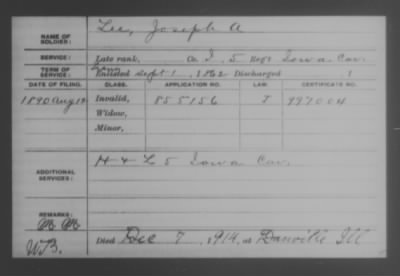 NAME OF SOLDIER: Lee, Joseph A
SERVICE: Late rank, Co. I, 5 Reg't Iowa Cav.
TERM OF SERVICE: Enlisted Sept 1, 1862 Discharged , 1
DATE OF FILING. CLASS. APPLICATION NO. LAW. CERTIFICATE NO.
1890 Aug Invalid, 855156 J 997004
Widow,
Minor,
ADDITIONAL SERVICES: H & L 5 Iowa Cav.
REMARKS:
Died Dec 7, 1914, at Danville Ill